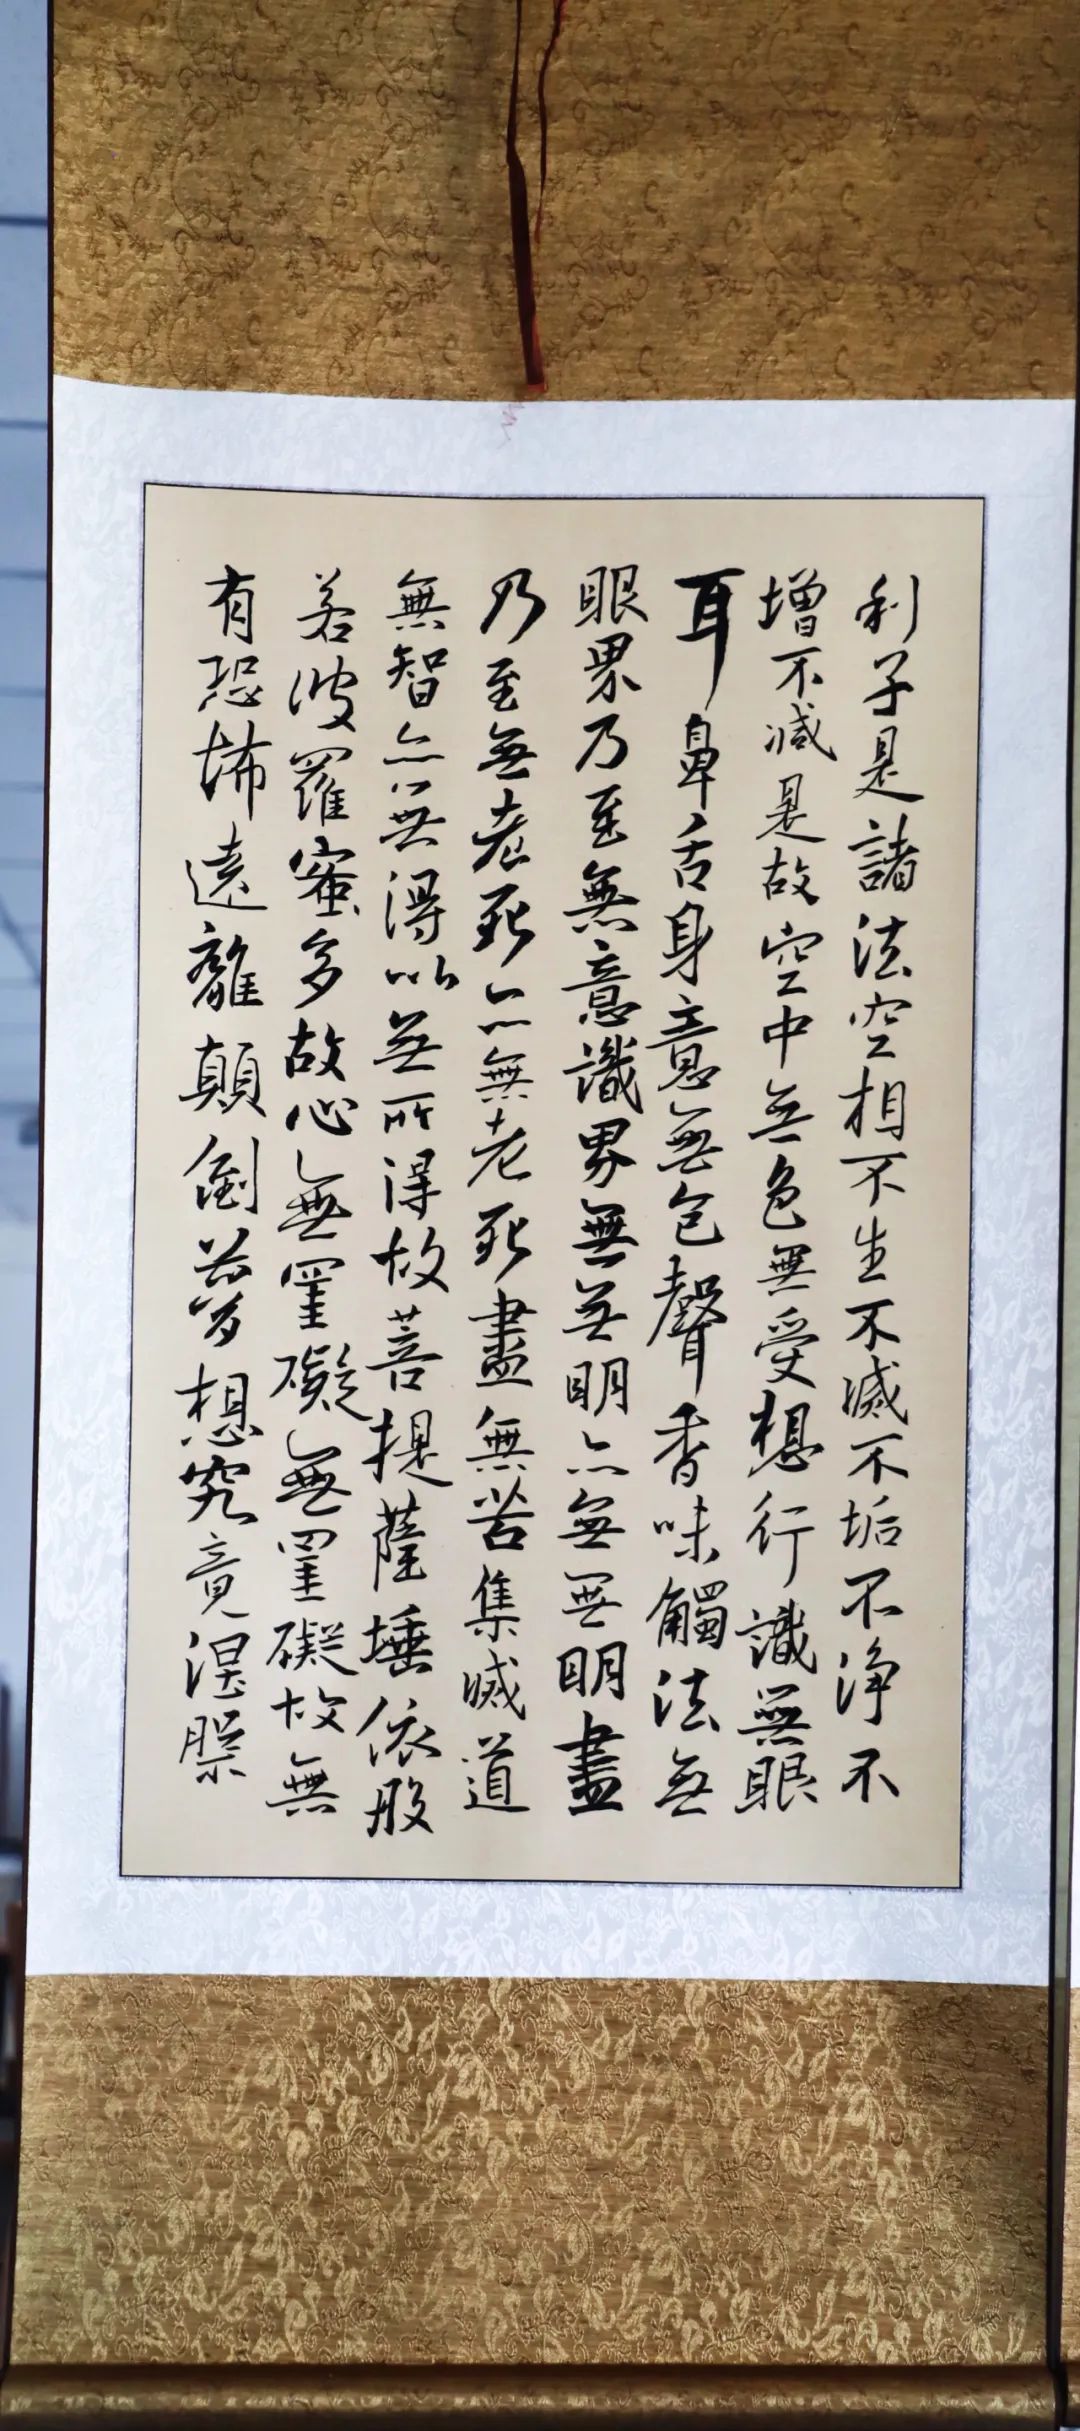 利子是諸法空相不生不滅不垢不淨不
增不減是故空中無色無受想行識無眼
耳鼻舌身意無色聲香味觸法無
眼界乃至無意識界無無明亦無無明盡
乃至無老死亦無老死盡無苦集滅道
無智亦無得以無所得故菩提薩埵依般
若波羅蜜多故心無罣礙無罣礙故無
有恐怖遠離顛倒夢想究竟涅槃